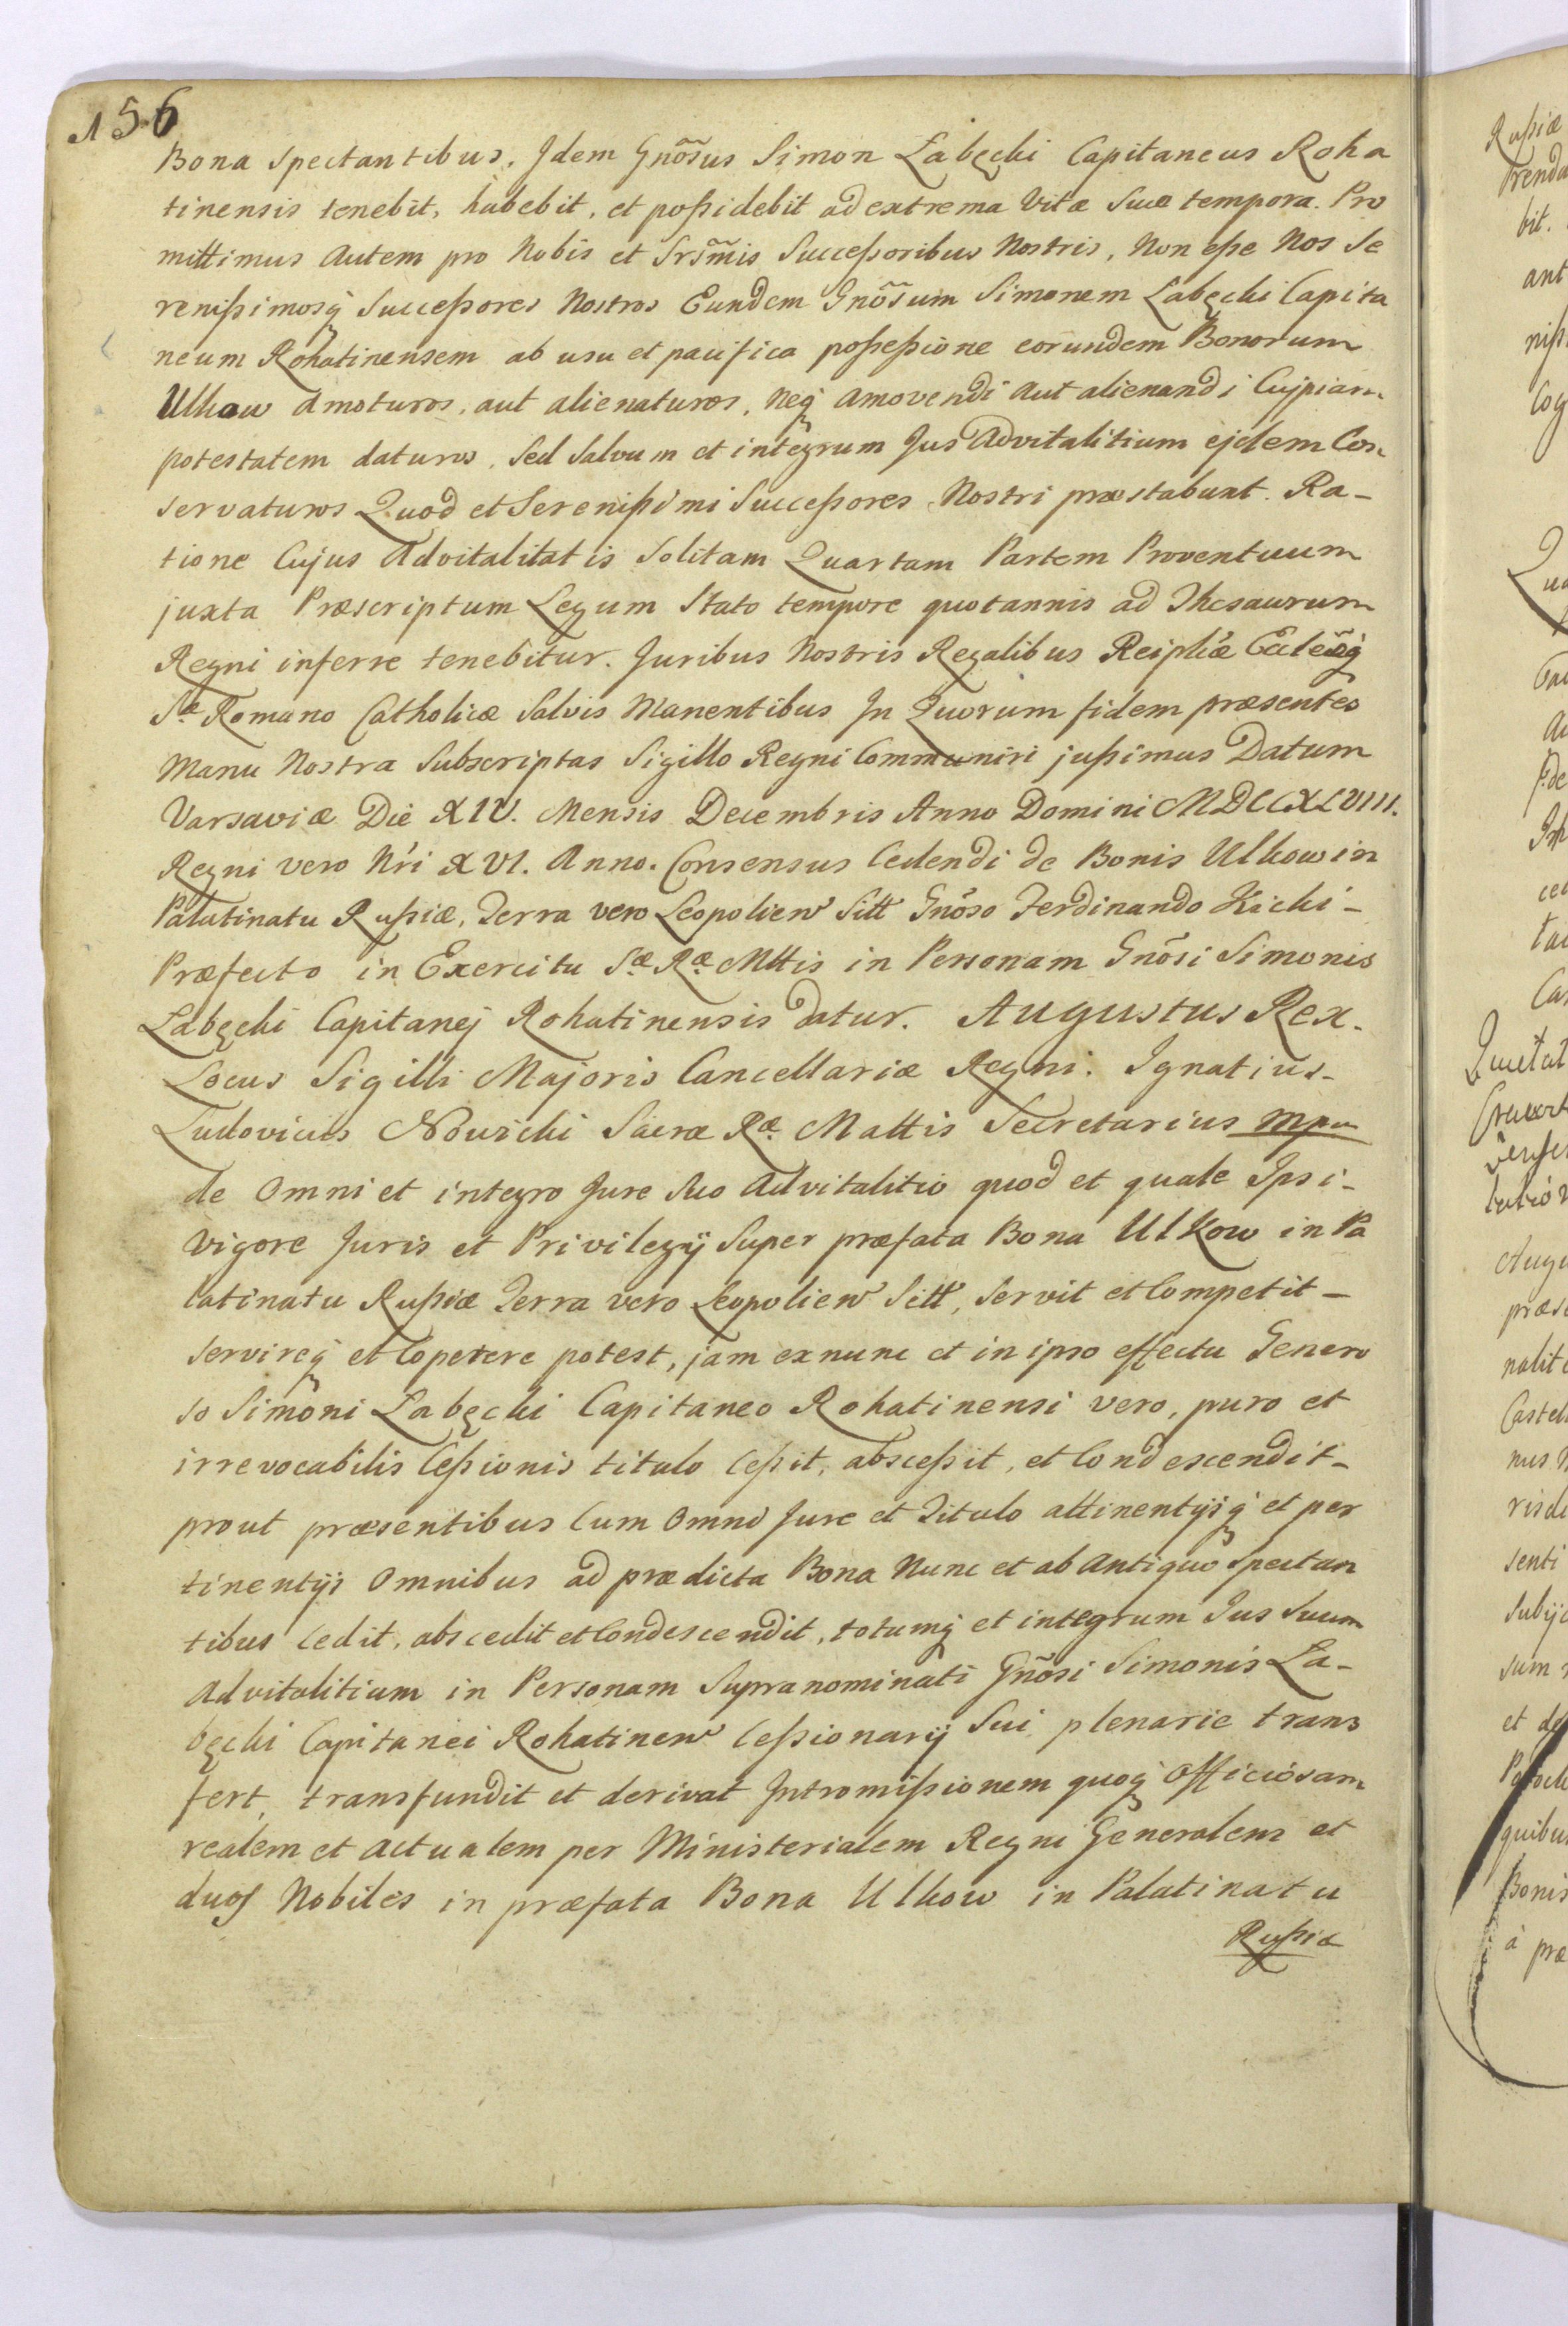 156
Bona spectantibus, Idem Gnõsus Simon Łabęcki Capitaneus Roha
tinensis tenebit, habebit, et poßidebit ad extrema vitæ suæ tempora. Pro
mittimus autem pro Nobis et Srsm̃is Succeßoribus Nostris, Non eße Nos Se
renißimosq́ Succeßores Nostros Eundem Gnõsum Simonem Łabęcki Capita
neum Rohatinensem ab usu et pacifica poßeßione eorundem Bonorum
Ulkow amoturos, aut alienaturos, Neq́ amovendi aut alienandi Cujpiam
potestatem daturos, Sed Salvum et integrum Jus Advitalitium ejdem Con
servaturos Quod et Serenißimi Succeßores Nostri præstabunt. Ra-
tione Cujus Advitalitatis Solitam Quartam Partem Proventuum
juxta Præscriptum Legum Stato tempore quotannis ad Thesaurum
Regni inferre tenebitur. Juribus Nostris Regalibus Reiplicæ Eclẽæq́
Sæ Romano Catholicæ Salvis Manentibus In Quorum fidem præsentes
Manu Nostra Subscriptas Sigillo Regni Communiri jußimus Datum
Varsaviæ Die XIV. Mensis Decembris Anno Domini MDCCXLVIII.
Regni vero Nr̃i XVI. Anno. Consensus Cedendi de Bonis Ulkow in
Palatinatu Rußiæ, Terra vero Leopolien Sitt Gnõso Ferdinando Kicki-
Præfecto in Exercitu Sæ Ræ Mttis in Personam Gnõsi Simonis
Łabęcki Capitanej Rohatinensis datur. Augustus Rex.
Locus Sigilli Majoris Cancellariæ Regni. Ignatius-
Ludovicus Nowicki Sacræ Ræ Mattis Secretarius mpu
de Omni et integro Jure Suo Advitalitio quod et quale Ipsi-
vigore Juris et Privilegij Super præfata Bona Ulkow in Pa
latinatu Rußiæ Terra vero Leopolien Sitt, Servit et Competit-
Servireq́ et Copetere potest, jam ex nunc et in ipso effectu Genero
so Simoni Łabęcki Capitaneo Rohatinensi vero, puro et
irrevocabilis Ceßionis titulo Ceßit, absceßit, et Condescendit-
prout præsentibus Cum Omni Jure et Titulo attinentijsq́ et per
tinentijs Omnibus ad prædicta Bona Nunc et ab Antiquo Spectan
tibus Cedit, abscedit et Condescendit, totumq́ et integrum Jus Suum
Advitalitium in Personam Supranominati Gnõsi Simonis Ła-
bęcki Capitanei Rohatinen Ceßionarij Sui plenarie trans
fert, transfundit et derivat Intromißionem quoq́ Officiosam
realem et actualem per Ministerialem Regni Generalem et
duos Nobiles in præfata Bona Ulkow in Palatinatu
Rußiæ